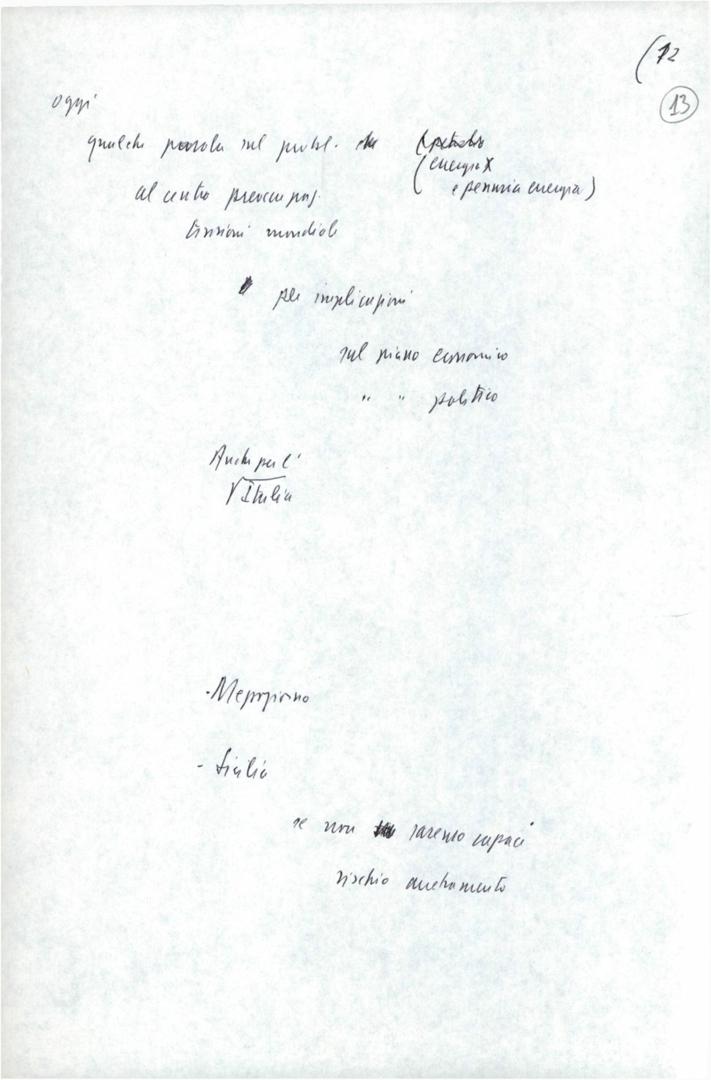 (12
13
oggi
qualche parola sul probl. (petrolio
(energia X
e penuria energia)
al centro preoccupaz.
tensioni mondiali
per implicazioni
sul piano economico
" " politico
Anche per l'
Italia
- Mezzogiorno
- Sicilia
se non saremo capaci
rischio arretramento